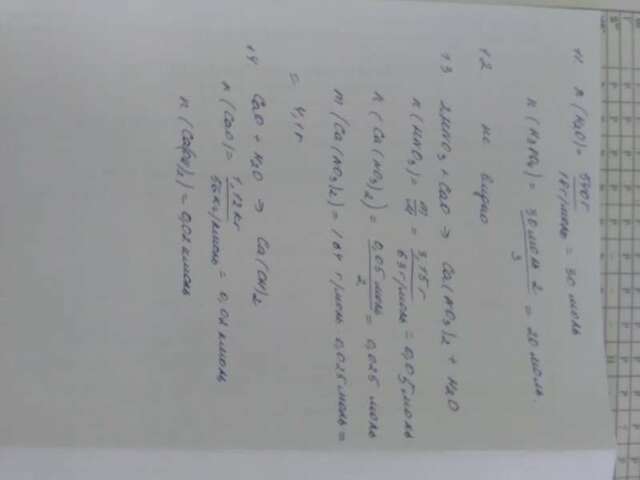 11 n(H2O) = 540 г / 18 г/моль = 30 моль
n(H3PO4) = 30 моль 2 / 3 = 20 моль.
12 не видно
13 2HNO3 + CaO → Ca(NO3)2 + H2O
n(HNO3) = m/M = 3,15 г / 63 г/моль = 0,05 моль
n(Ca(NO3)2) = 0,05 моль / 2 = 0,025 моль
m(Ca(NO3)2) = 164 г/моль · 0,025 моль =
= 4,1 г
14 CaO + H2O → Ca(OH)2
n(CaO) = 1,12 кг / 56 кг/кмоль = 0,02 кмоль
n(Ca(OH)2) = 0,02 кмоль